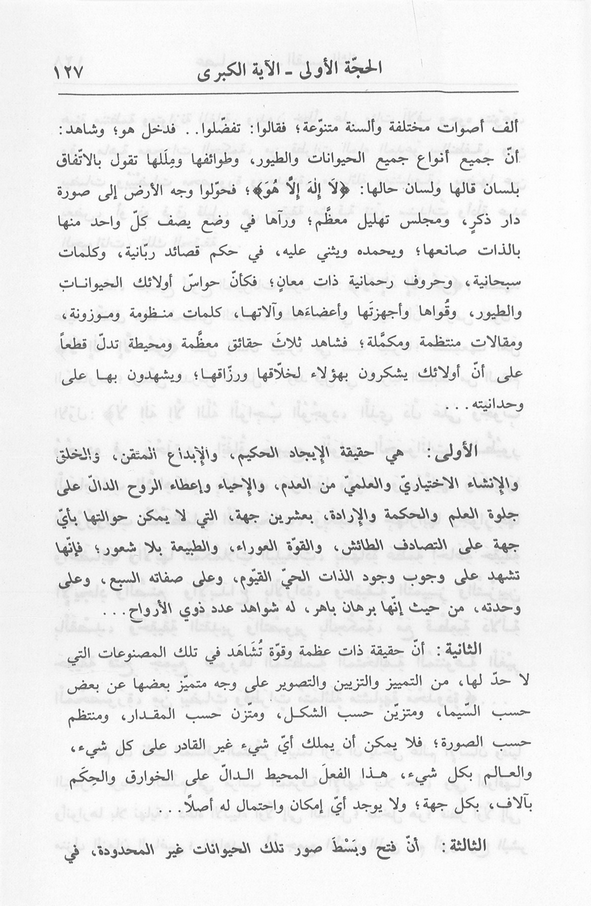 الحجّة الأولى - الآية الكبرى ١٢٧
ألف أصوات مختلفة وألسنة متنوّعة؛ فقالوا: تفضّلوا.. فدخل هو؛ وشاهد:
أنّ جميع أنواع جميع الحيوانات والطيور، وطوائفها ومِلَلها تقول بالاتّفاق
بلسان قالها ولسان حالها: ﴿لَا إِلَهَ إِلَّا هُوَ﴾؛ فحوّلوا وجه الأرض إلى صورة
دار ذكرٍ، ومجلس تهليل معظَّم؛ ورآها في وضع يصف كلّ واحد منها
بالذات صانعها؛ ويحمده ويثني عليه، في حكم قصائد ربّانية، وكلمات
سبحانية، وحروف رحمانية ذات معانٍ؛ فكأنّ حواسّ أولائك الحيوانات
والطيور، وقُواها وأجهزتَها وأعضاءَها وآلاتها، كلمات منظومة وموزونة،
ومقالات منتظمة ومكمَّلة؛ فشاهد ثلاثَ حقائق معظَّمة ومحيطة تدلّ قطعاً
على أنّ أولائك يشكرون بهؤلاء لخلّاقها ورزّاقها؛ ويشهدون بها على
وحدانيته...
الأولى: هي حقيقة الإيجاد الحكيم، والإبداع المتقن، والخلق
والإنشاء الاختياريّ والعلميّ من العدم، والإحياء وإعطاء الروح الدالّ على
جلوة العلم والحكمة والإرادة، بعشرين جهة، التي لا يمكن حوالتها بأيّ
جهة على التصادف الطائش، والقوّة العوراء، والطبيعة بلا شعور؛ فإنّها
تشهد على وجوب وجود الذات الحيّ القيّوم، وعلى صفاته السبع، وعلى
وحدته، من حيث إنها برهان باهر، له شواهد عدد ذوي الأرواح...
الثانية: أنّ حقيقة ذات عظمة وقوّة تُشَاهَد في تلك المصنوعات التي
لا حدّ لها، من التمييز والتزيين والتصوير على وجه متميّز بعضها عن بعض
حسب السّيما، ومتزيّن حسب الشكل، ومتّزن حسب المقدار، ومنتظم
حسب الصورة؛ فلا يمكن أن يملك أيّ شيء غير القادر على كل شيء،
والعالم بكل شيء، هذا الفعلَ المحيط الدالّ على الخوارق والحِكَم
بآلاف، بكل جهة؛ ولا يوجد أيّ إمكان واحتمال له أصلاً...
الثالثة: أنّ فتح وبَسْطَ صور تلك الحيوانات غير المحدودة، في